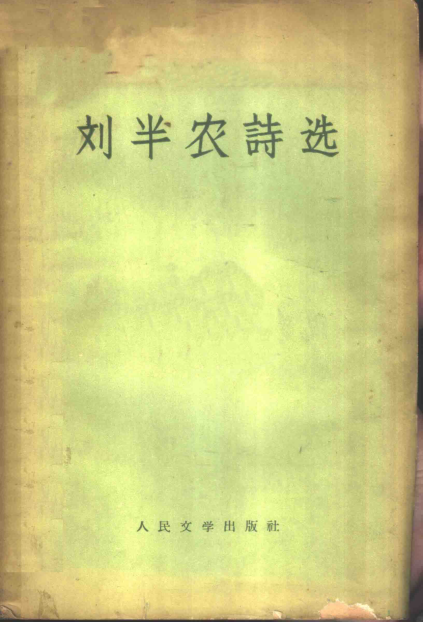 刘半农詩选
人民文学出版社